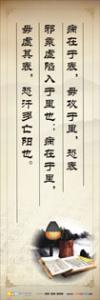 病在于表，毋攻于里，恐表
邪乘虚陷入于里也；病在于里，
毋虚其表，恐汗多亡阳也。